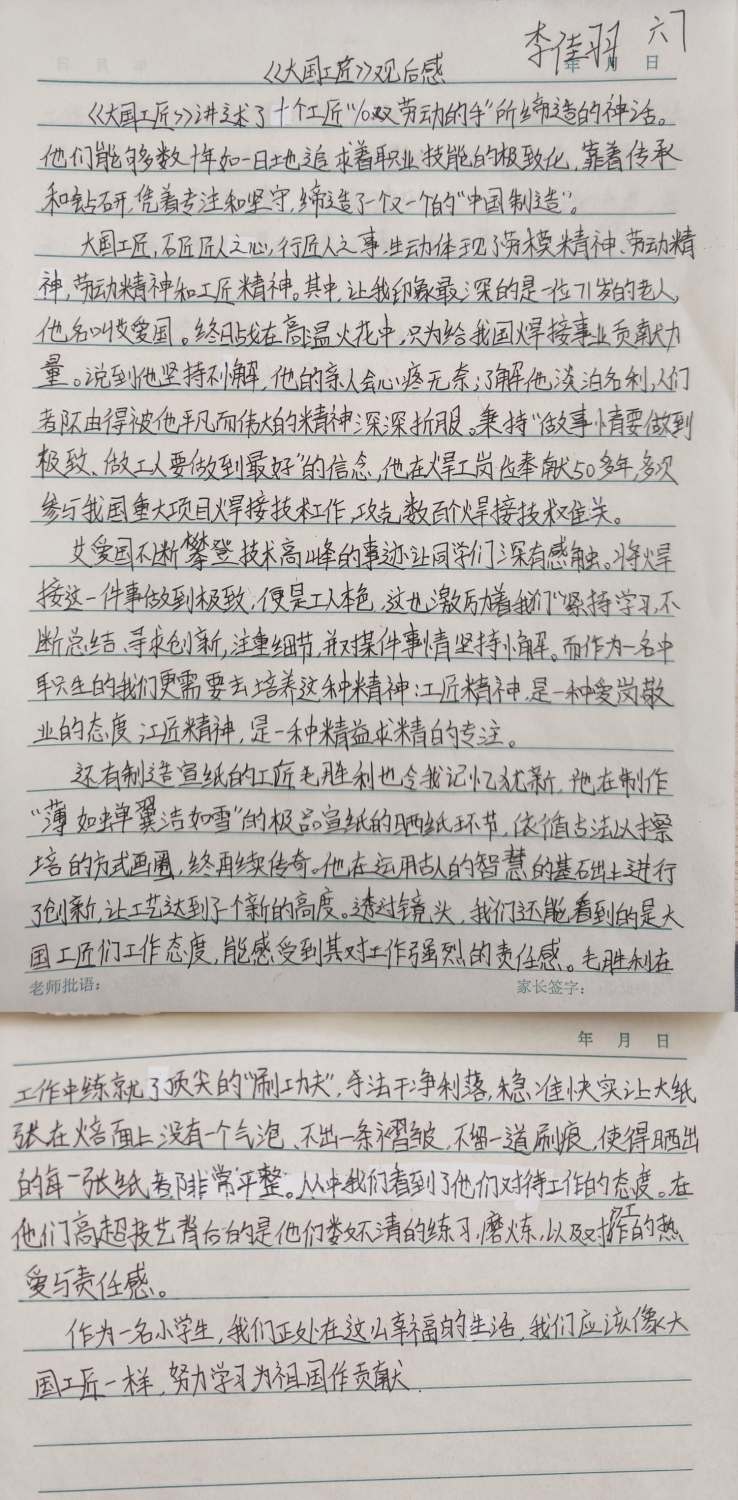 李佳羽 六7
年 月 日
《大国工匠》观后感
《大国工匠》讲述了十个工匠"10双劳动的手"所缔造的神话。
他们能够多数十年如一日地追求着职业技能的极致化,靠着传承
和钻研,凭着专注和坚守,缔造了一个又一个的"中国制造"。
大国工匠,匠匠人之心,行匠人之事,生动体现了劳模精神、劳动精
神,劳动精神和工匠精神。其中,让我印象最深的是一位71岁的老人,
他名叫艾爱国。终日战在高温火花中,只为给我国焊接事业贡献力
量。说到他坚持不懈,他的亲人会心疼无奈;了解他淡泊名利,人们
都不由得被他平凡而伟大的精神深深折服。秉持"做事情要做到
极致、做工人要做到最好"的信念,他在焊工岗位奉献50多年,多次
参与我国重大项目焊接技术工作,攻克数百个焊接技术难关。
艾爱国不断攀登技术高峰的事迹让同学们深有感触。将焊
接这一件事做到极致,便是工人本色,这也激励着我们"坚持学习,不
断总结、寻求创新,注重细节,并对某件事情坚持不懈。而作为一名中
职生的我们更需要去培养这种精神:工匠精神,是一种爱岗敬
业的态度,工匠精神,是一种精益求精的专注。
还有制造宣纸的工匠毛胜利也令我记忆犹新,他在制作
"薄如蝉翼洁如雪"的极品宣纸的晒纸环节,依循古法以擦
焙的方式画圈,终再续传奇。他在运用古人的智慧的基础上进行
了创新,让工艺达到了个新的高度。透过镜头,我们还能看到的是大
国工匠们工作态度,能感受到其对工作强烈的责任感。毛胜利在
老师批语: 家长签字:
年 月 日
工作中练就了顶尖的"刷工功夫",手法干净利落,稳准快实让大纸
张在焙面上没有一个气泡、不出一条褶皱,不留一道刷痕,使得晒出
的每一张纸都非常平整。从中我们看到了他们对待工作的态度。在
他们高超技艺背后的是他们数不清的练习,磨炼,以及对工作的热
爱与责任感。
作为一名小学生,我们正处在这么幸福的生活,我们应该像大
国工匠一样,努力学习为祖国作贡献.